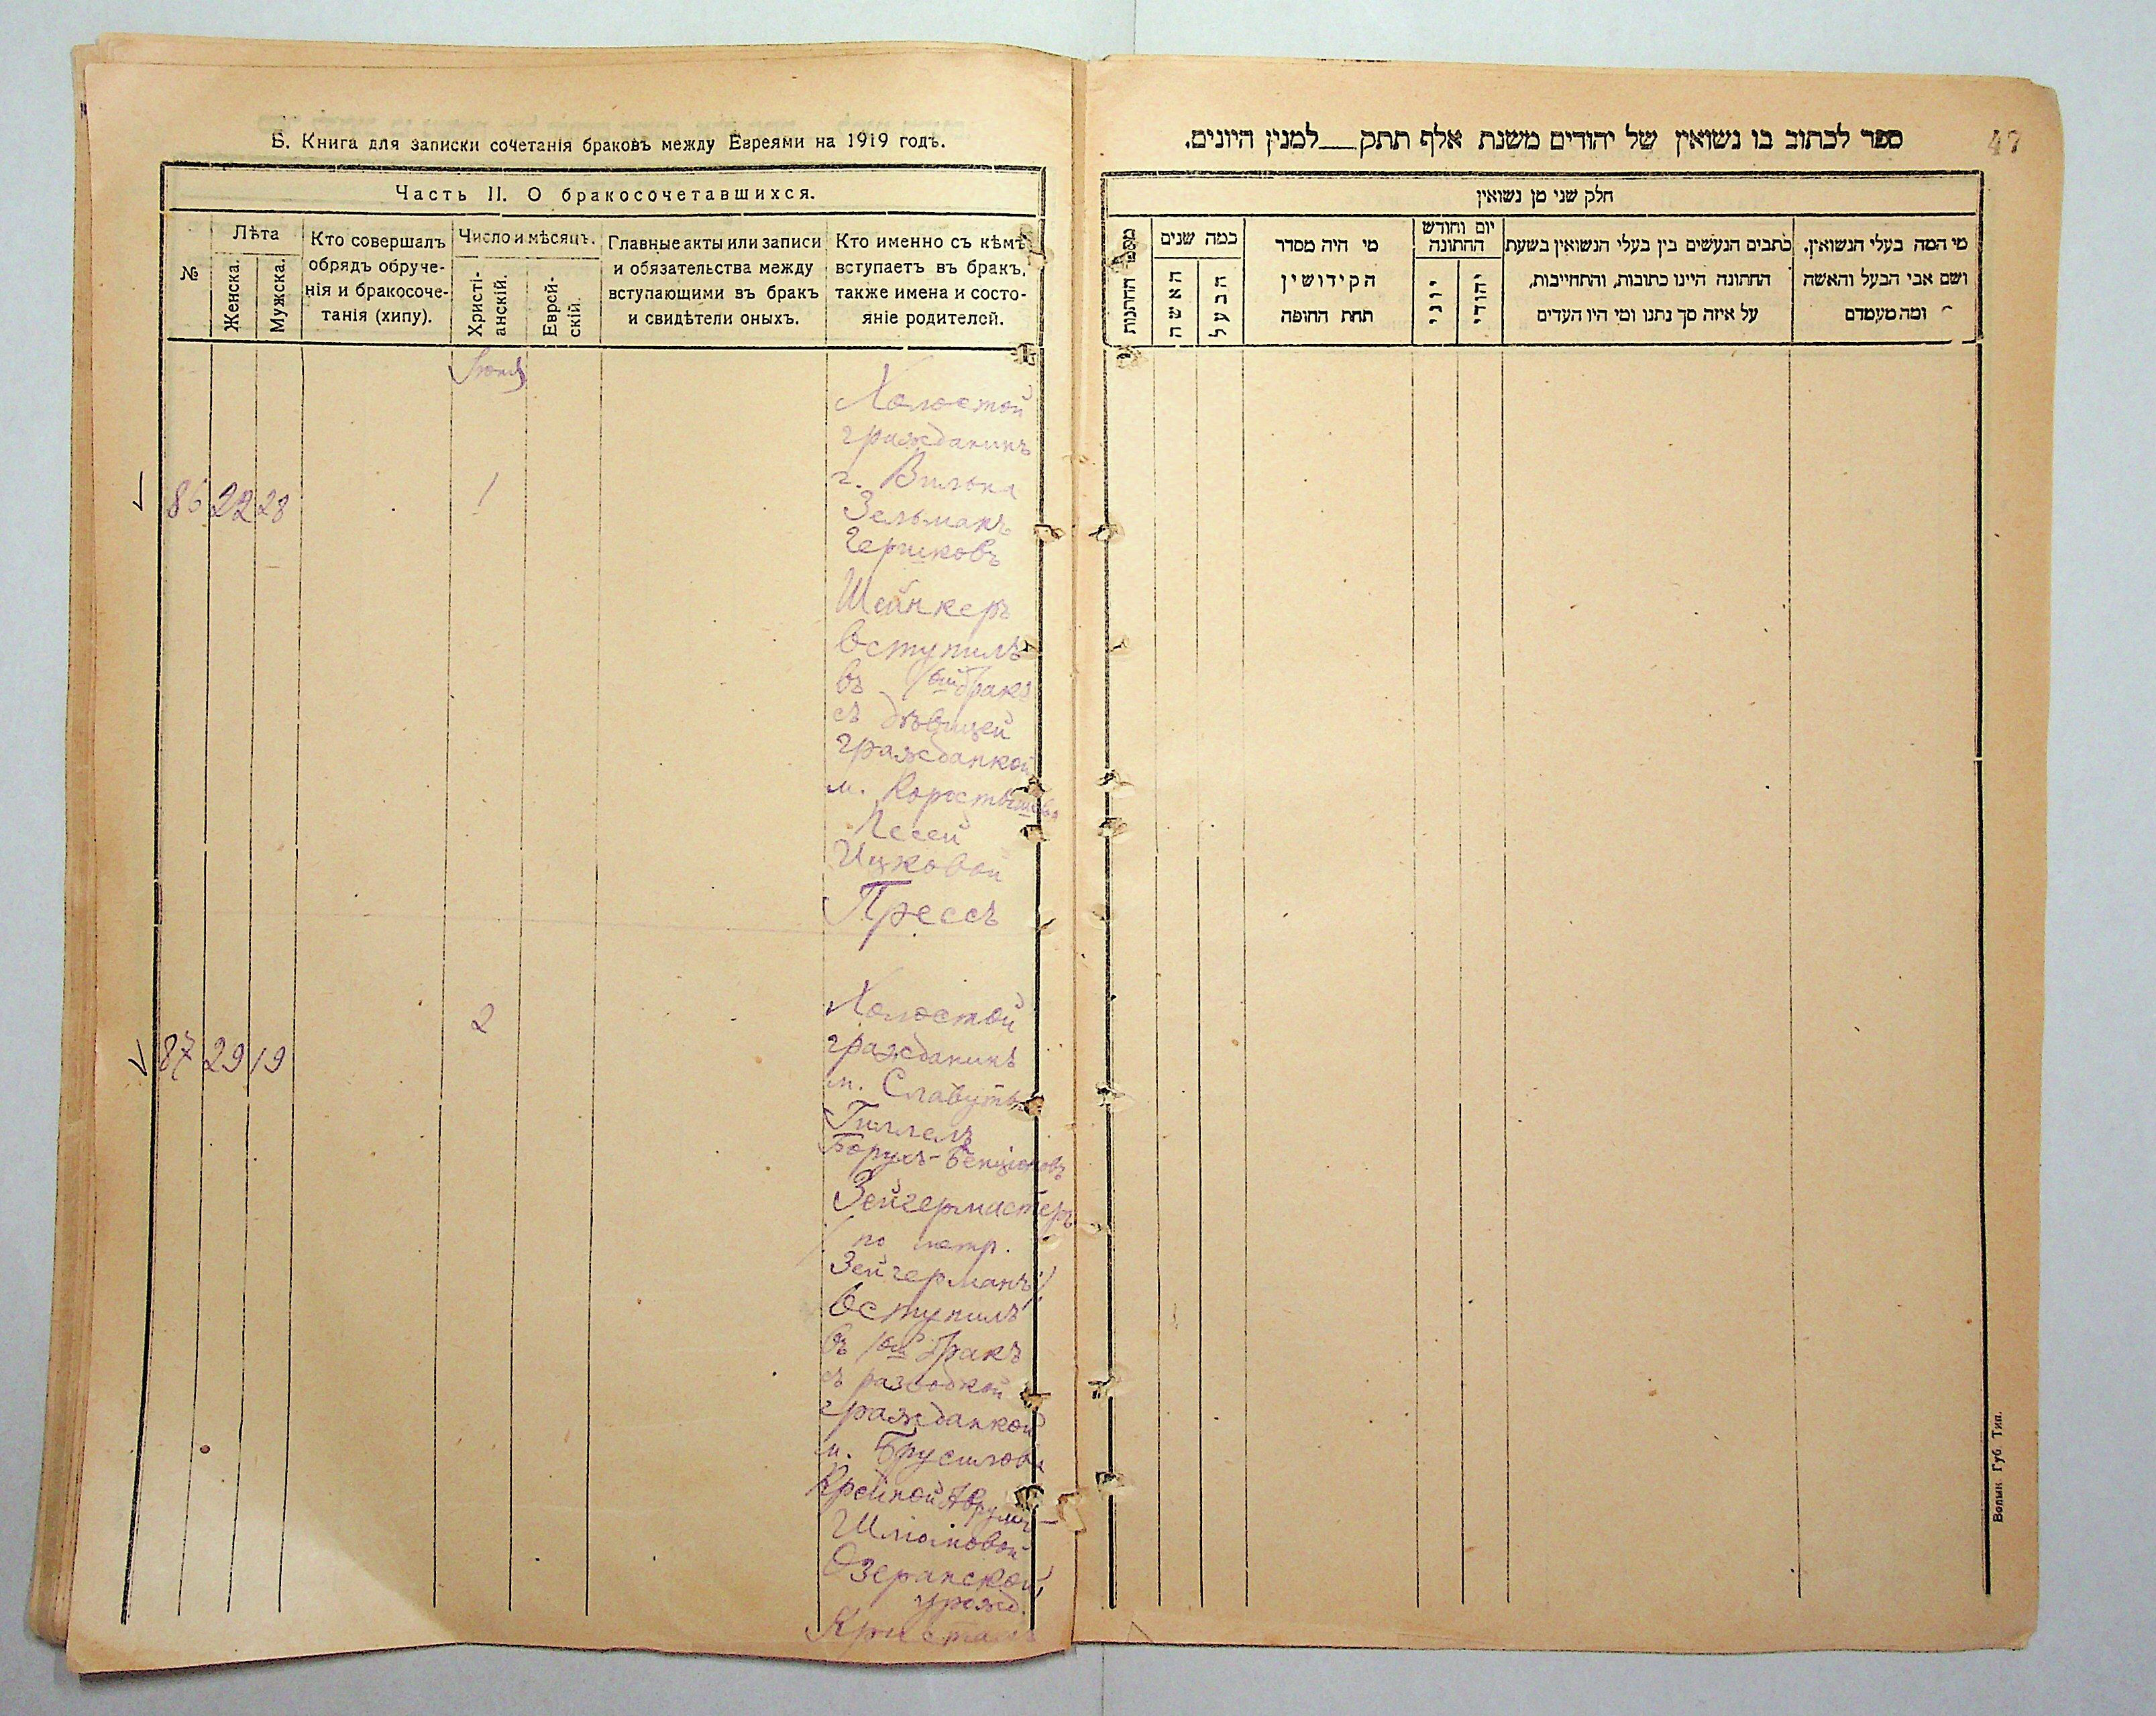 Б. Книга для записки сочетанія браковъ между Евреями на 1919 годъ.
Часть II. О бракосочетавшихся.
№
Лѣта
Женска.
Мужска.
Кто совершалъ
обрядъ обруче-
нія и бракосоче-
танія (хипу).
Число и мѣсяцъ.
Христі-
анскій.
Еврей-
скій.
Главные акты или записи
и обязательства между
вступающими въ бракъ
и свидѣтели оныхъ.
Кто именно съ кѣмъ
вступаетъ въ бракъ,
также имена и состо-
яніе родителей.
86 22 28
1
Холостой
гражданинъ
г. Вильна
Зельманъ
Гершковъ
Шейнкеръ
вступилъ
въ 1ый бракъ
съ дѣвицей
гражданкой
м. Коростышева
Песей
Ицковой
Прессъ
87 29 19
2
Холостой
гражданинъ
м. Славуты
Гиллель
Борухъ-Бенціоновъ
Зейгермастеръ
(по метр.
Зейгерманъ)
вступилъ
въ 1ый бракъ
съ разводкой
гражданкой
м. Брусилова
Крейной Аврумъ-
Шліомовой
Озеранской,
урожд.
Кристалъ
ספר לכתוב בו נשואין של יהודים משנת אלף תתק___למנין היונים.
47
חלק שני מן נשואין
מספר החתונות
כמה שנים
האשה
הבעל
מי היה מסדר
הקידושין
תחת החופה
יום וחודש
החתונה
יוני
יהודי
כתבים הנעשים בין בעלי הנשואין בשעת
החתונה היינו כתובות, והתחייבות,
על איזה סך נתנו ומי היו העדים
מי המה בעלי הנשואין.
ושם אבי הבעל והאשה
ומה מעמדם
Волын. Губ. Тип.